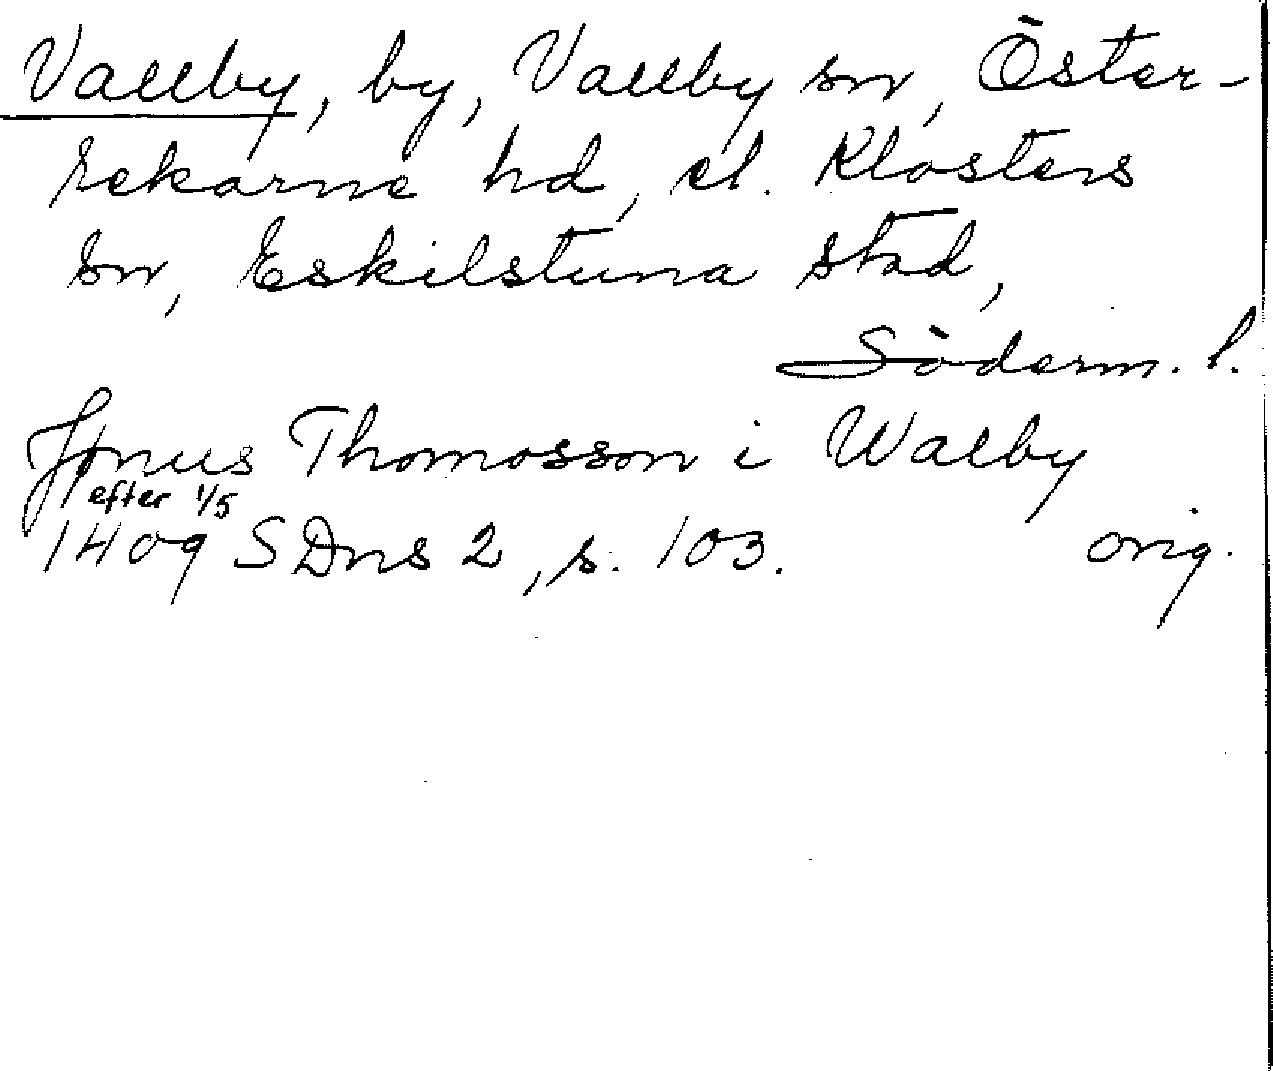 Vallby, by, Vallby sn, Öster-
rekarne hd, el. Klosters
sn, Eskilstuna stad,
Söderm. l.
Jønus Thomosson i Walby
efter 1/5
1409 SDns 2, s. 103. orig.